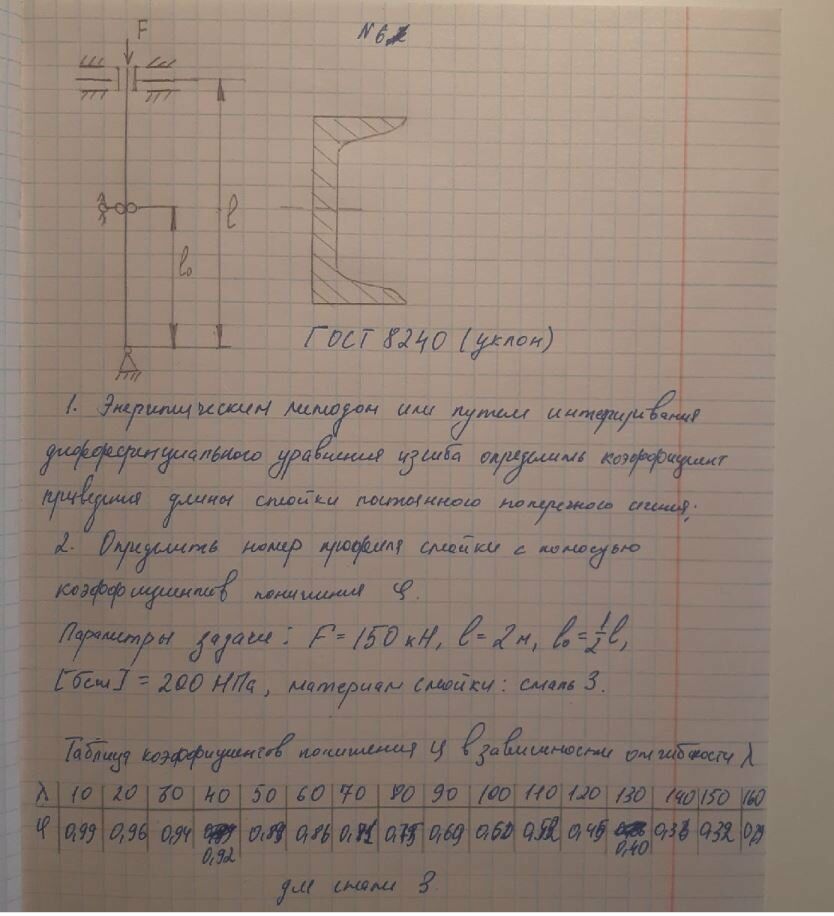 F
N 6
l
l₀
ГОСТ 8240 (уклон)
1. Энергетическим методом или путем интегрирования
дифференциального уравнения изгиба определить коэффициент
приведения длины стойки постоянного поперечного сечения;
2. Определить номер профиля стойки с помощью
коэффициентов понижения φ.
Параметры задачи: F = 150 кН, l = 2 м, l₀ = 1/2 l,
[σст] = 200 МПа, материал стойки: сталь 3.
Таблица коэффициентов понижения φ в зависимости от гибкости λ
λ 10 20 30 40 50 60 70 80 90 100 110 120 130 140 150 160
φ 0,99 0,96 0,94 0,92 0,89 0,86 0,81 0,75 0,69 0,52 0,45 0,40 0,32
для стали 3